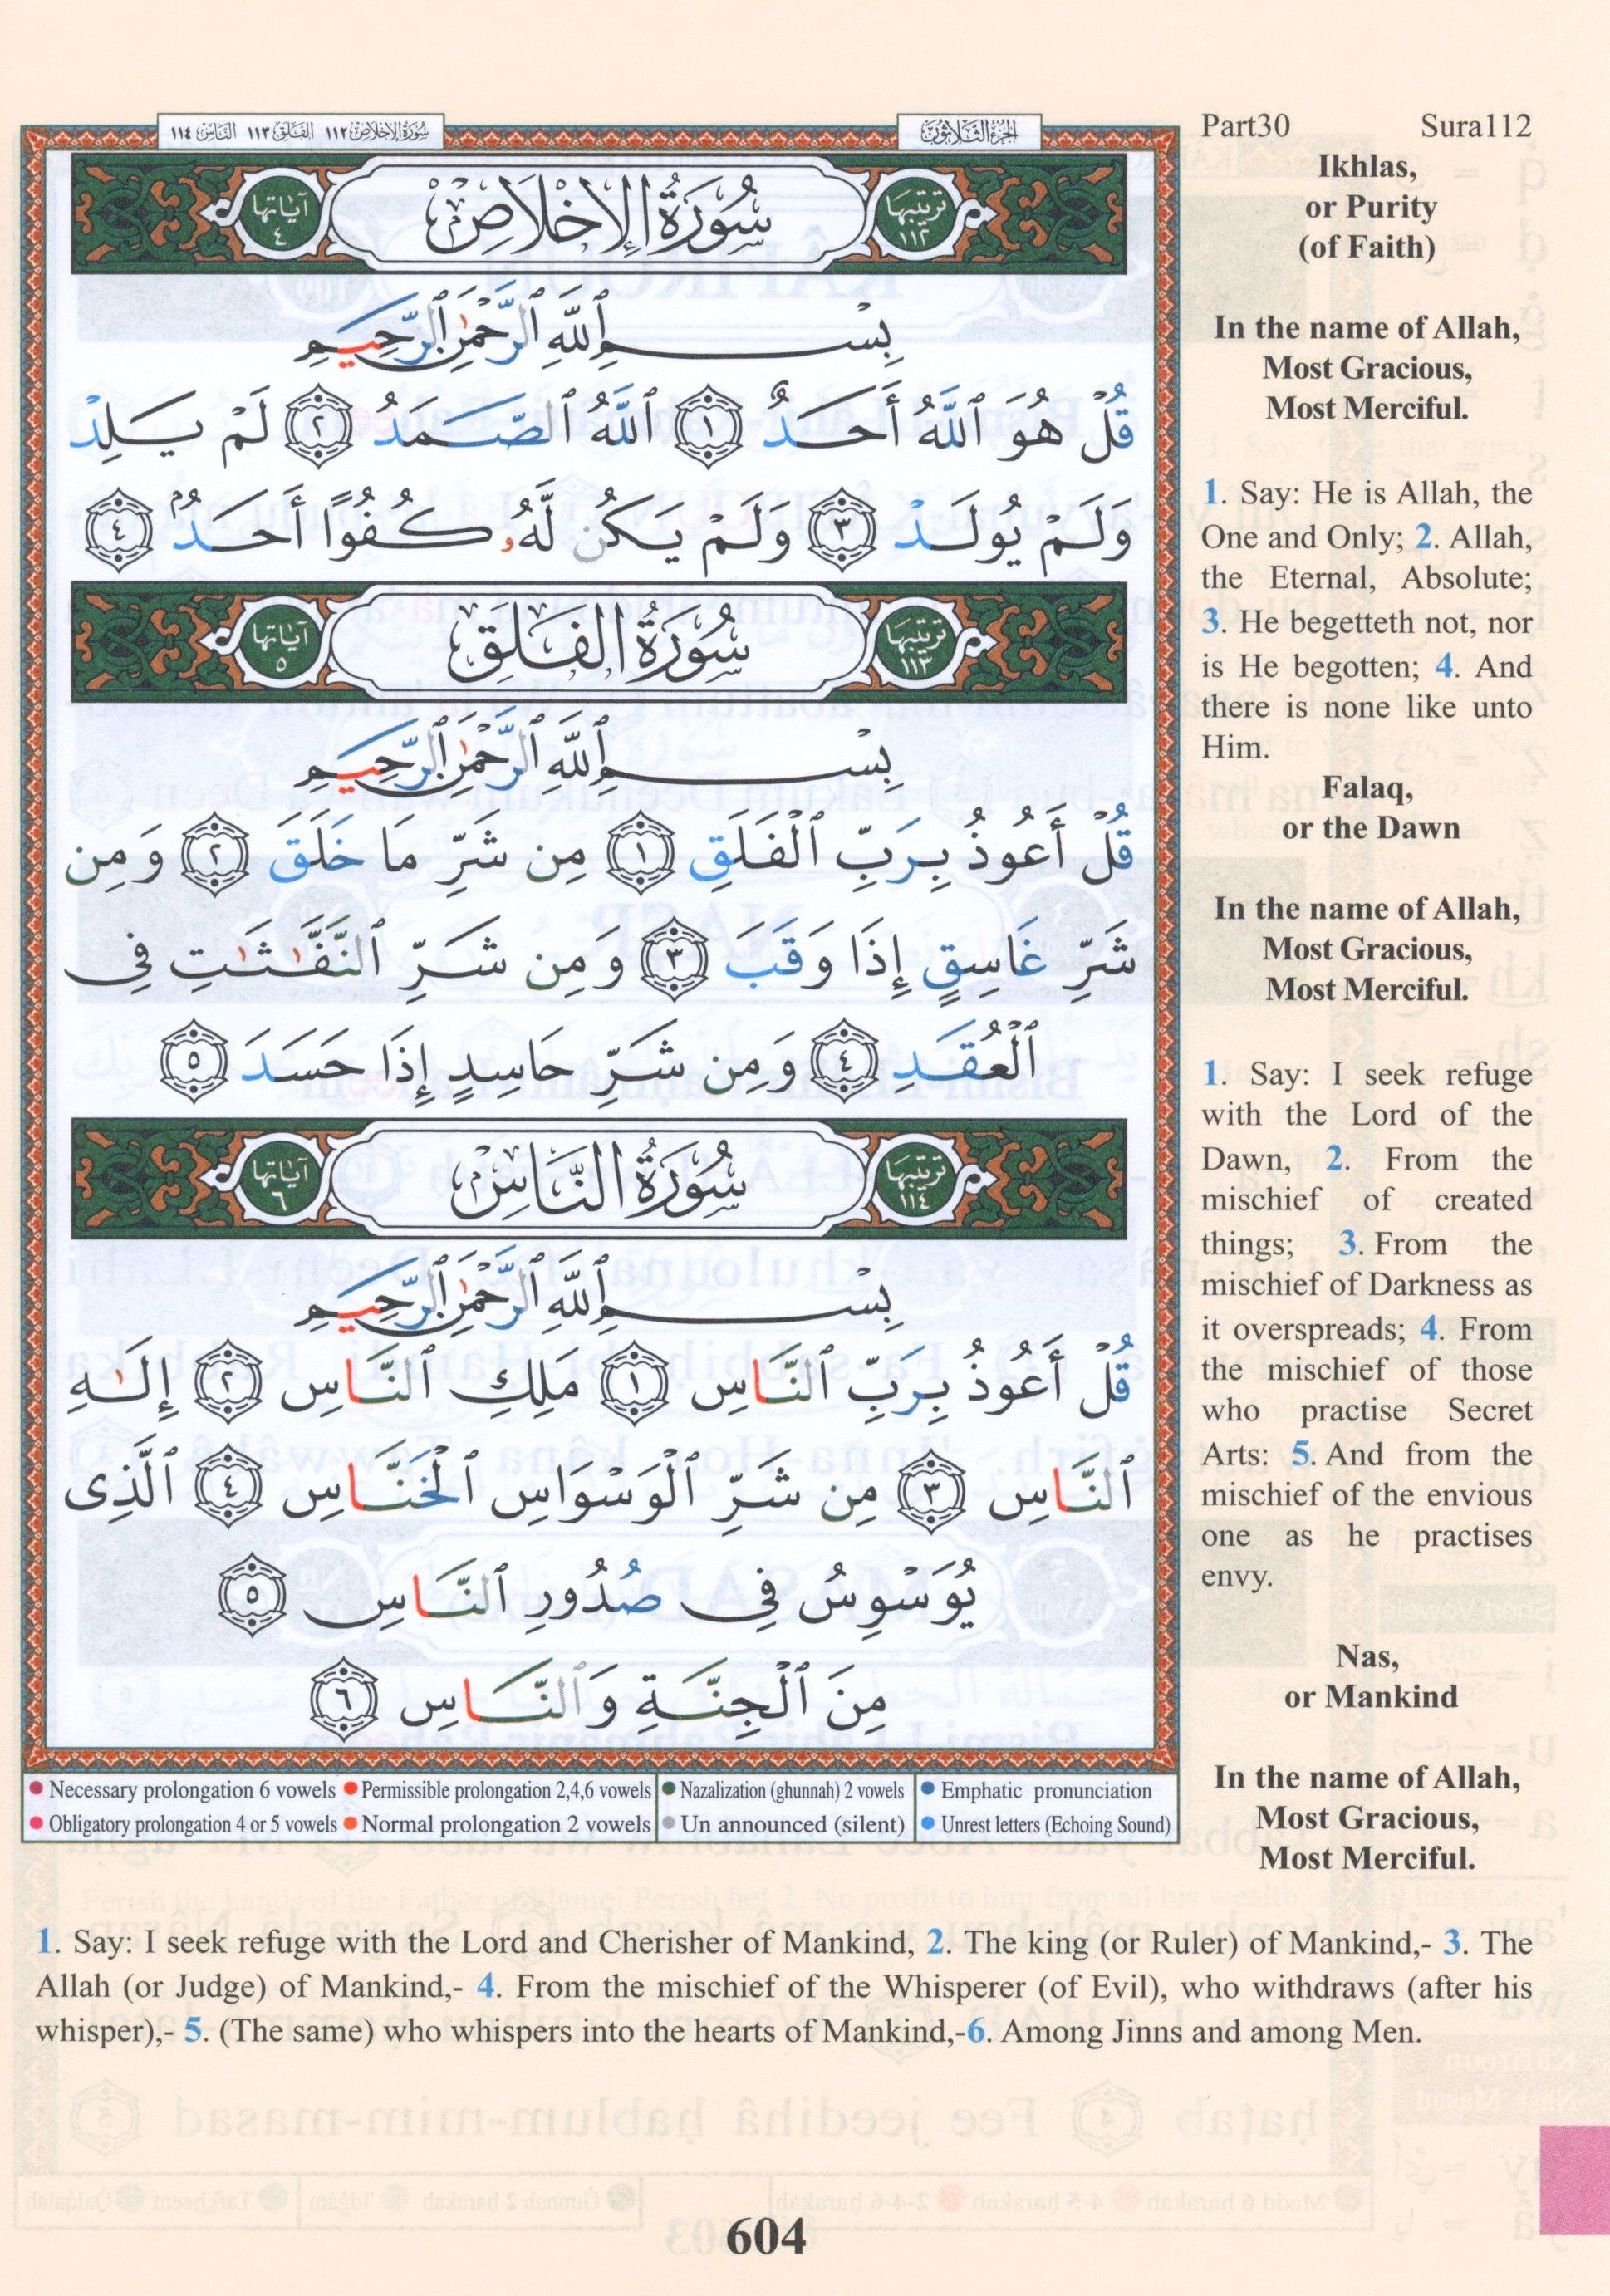 سُورَةُ الإِخْلَاصِ ١١٢ الفَلَقِ ١١٣ النَّاسِ ١١٤
الجُزْءُ الثَّلَاثُونَ
ترتيبها ١١٢ سُورَةُ الإِخْلَاصِ آياتها ٤
بِسْمِ ٱللَّهِ ٱلرَّحْمَٰنِ ٱلرَّحِيمِ
قُلْ هُوَ ٱللَّهُ أَحَدٌ ١ ٱللَّهُ ٱلصَّمَدُ ٢ لَمْ يَلِدْ
وَلَمْ يُولَدْ ٣ وَلَمْ يَكُن لَّهُۥ كُفُوًا أَحَدٌۢ ٤
ترتيبها ١١٣ سُورَةُ الفَلَقِ آياتها ٥
بِسْمِ ٱللَّهِ ٱلرَّحْمَٰنِ ٱلرَّحِيمِ
قُلْ أَعُوذُ بِرَبِّ ٱلْفَلَقِ ١ مِن شَرِّ مَا خَلَقَ ٢ وَمِن
شَرِّ غَاسِقٍ إِذَا وَقَبَ ٣ وَمِن شَرِّ ٱلنَّفَّٰثَٰتِ فِى
ٱلْعُقَدِ ٤ وَمِن شَرِّ حَاسِدٍ إِذَا حَسَدَ ٥
ترتيبها ١١٤ سُورَةُ النَّاسِ آياتها ٦
بِسْمِ ٱللَّهِ ٱلرَّحْمَٰنِ ٱلرَّحِيمِ
قُلْ أَعُوذُ بِرَبِّ ٱلنَّاسِ ١ مَلِكِ ٱلنَّاسِ ٢ إِلَٰهِ
ٱلنَّاسِ ٣ مِن شَرِّ ٱلْوَسْوَاسِ ٱلْخَنَّاسِ ٤ ٱلَّذِى
يُوَسْوِسُ فِى صُدُورِ ٱلنَّاسِ ٥
مِنَ ٱلْجِنَّةِ وَٱلنَّاسِ ٦
Necessary prolongation 6 vowels Permissible prolongation 2,4,6 vowels Nazalization (ghunnah) 2 vowels Emphatic pronunciation
Obligatory prolongation 4 or 5 vowels Normal prolongation 2 vowels Un announced (silent) Unrest letters (Echoing Sound)
Part30 Sura112
Ikhlas,
or Purity
(of Faith)
In the name of Allah,
Most Gracious,
Most Merciful.
1. Say: He is Allah, the
One and Only; 2. Allah,
the Eternal, Absolute;
3. He begetteth not, nor
is He begotten; 4. And
there is none like unto
Him.
Falaq,
or the Dawn
In the name of Allah,
Most Gracious,
Most Merciful.
1. Say: I seek refuge
with the Lord of the
Dawn, 2. From the
mischief of created
things; 3. From the
mischief of Darkness as
it overspreads; 4. From
the mischief of those
who practise Secret
Arts: 5. And from the
mischief of the envious
one as he practises
envy.
Nas,
or Mankind
In the name of Allah,
Most Gracious,
Most Merciful.
1. Say: I seek refuge with the Lord and Cherisher of Mankind, 2. The king (or Ruler) of Mankind,- 3. The
Allah (or Judge) of Mankind,- 4. From the mischief of the Whisperer (of Evil), who withdraws (after his
whisper),- 5. (The same) who whispers into the hearts of Mankind,-6. Among Jinns and among Men.
604